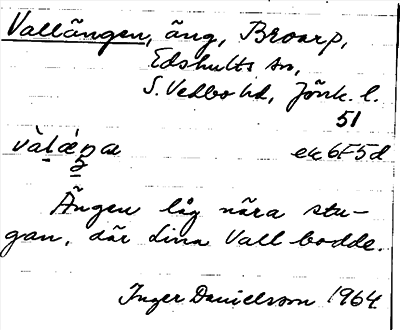 Vallängen, äng, Broarp,
Edshults sn,
S. Vedbo hd, Jönk. l.
51
ek 6F5d
Ängen låg nära stu-
gan, där Lina Vall bodde.
Inger Danielsson 1964